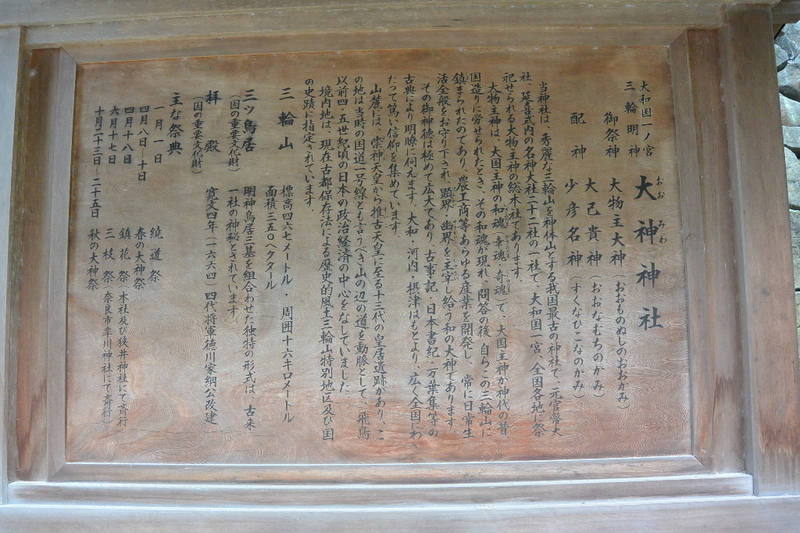 大和国一ノ宮
三輪明神
大神神社
おお みわ
御祭神 大物主大神(おおものぬしのおおかみ)
大己貴神(おおなむちのかみ)
配神 少彦名神(すくなひこなのかみ)
当神社は、秀麗な三輪山を神体山とする我国最古の神社で、元官幣大
社 延喜式内の名神大社二十二社の一社で、大和国一宮、全国各地に祭
祀せられる大物主神の総本社であります。
大物主神は、大国主神の和魂(幸魂・奇魂)で、大国主神が神代の昔
国造りに労せられたとき、その和魂が現れ、問答の後、自らこの三輪山に
鎮まられたのであり、農工商等あらゆる産業を開発し、常に日常生
活全般をお守り下され、顕界・幽界を主宰し給う和の大神であります。
その御神徳は極めて広大であり、古事記・日本書紀・万葉集等の
古典により明瞭に伺えます。大和・河内・摂津はもとより、広く全国にわ
たって篤い信仰を集めています。
山麓には、崇神天皇から推古天皇に至る十三代の皇居遺跡があり、こ
の地は当時の国道一号線とも言うべき山の辺の道を動脈として、飛鳥
以前四・五世紀頃の日本の政治経済の中心をなしていました。
境内地は、現在古都保存法による歴史的風土三輪山特別地区及び国
の史跡に指定されています。
三輪山 標高四六七メートル・周囲十六キロメートル
面積三五〇ヘクタール
三ツ鳥居 明神鳥居三基を組合わせた独特の形式は、古来
(国の重要文化財) 一社の神秘とされています。
拝殿 寛文四年(一六六四)四代将軍徳川家綱公改建
(国の重要文化財)
主な祭典
一月一日 繞道祭
四月八日〜十日 春の大神祭
四月十八日 鎮花祭(本社及び狭井神社にて斎行)
六月十七日 三枝祭(奈良市率川神社にて斎行)
十月二十三日〜二十五日 秋の大神祭